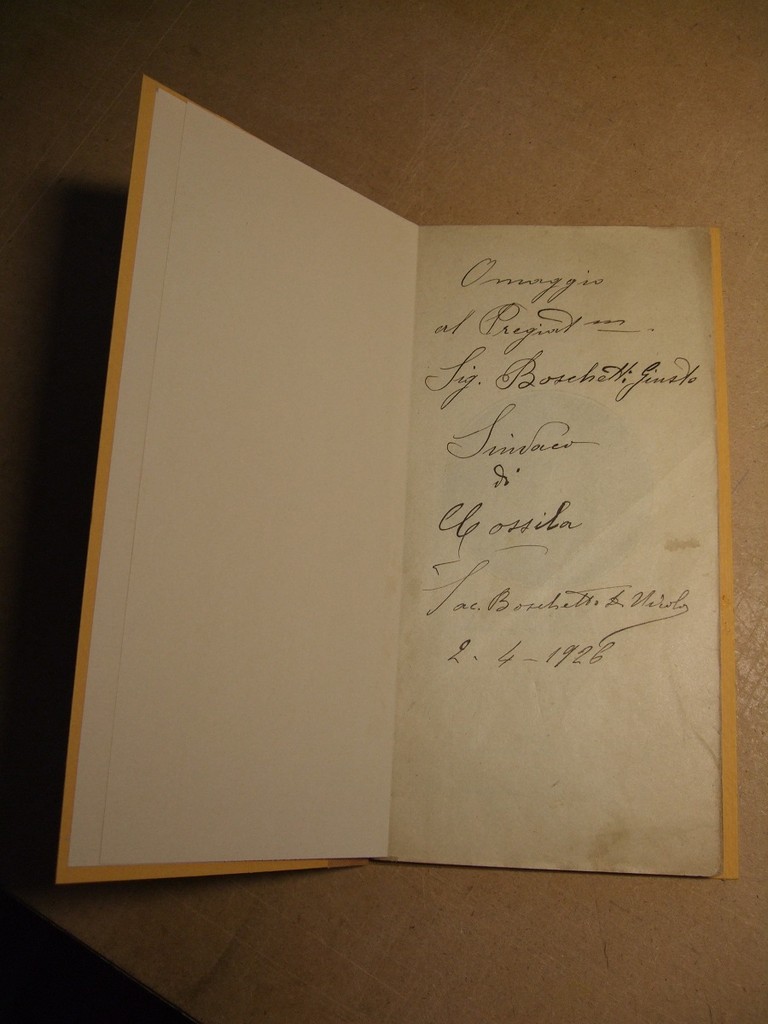 Omaggio
al Pregiat mo.
Sig. Boschetti Giusto
Sindaco
di
Cossila
Sac. Boschetti
2. 4 - 1926